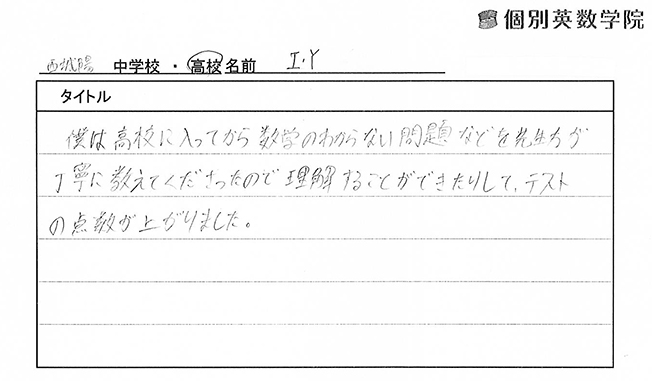 個別英数学院
西城陽 中学校 ・ 高校 名前 I.Y
タイトル
僕は高校に入ってから数学のわからない問題などを先生方が
丁寧に教えてくださったので理解することができたりして、テスト
の点数が上がりました。